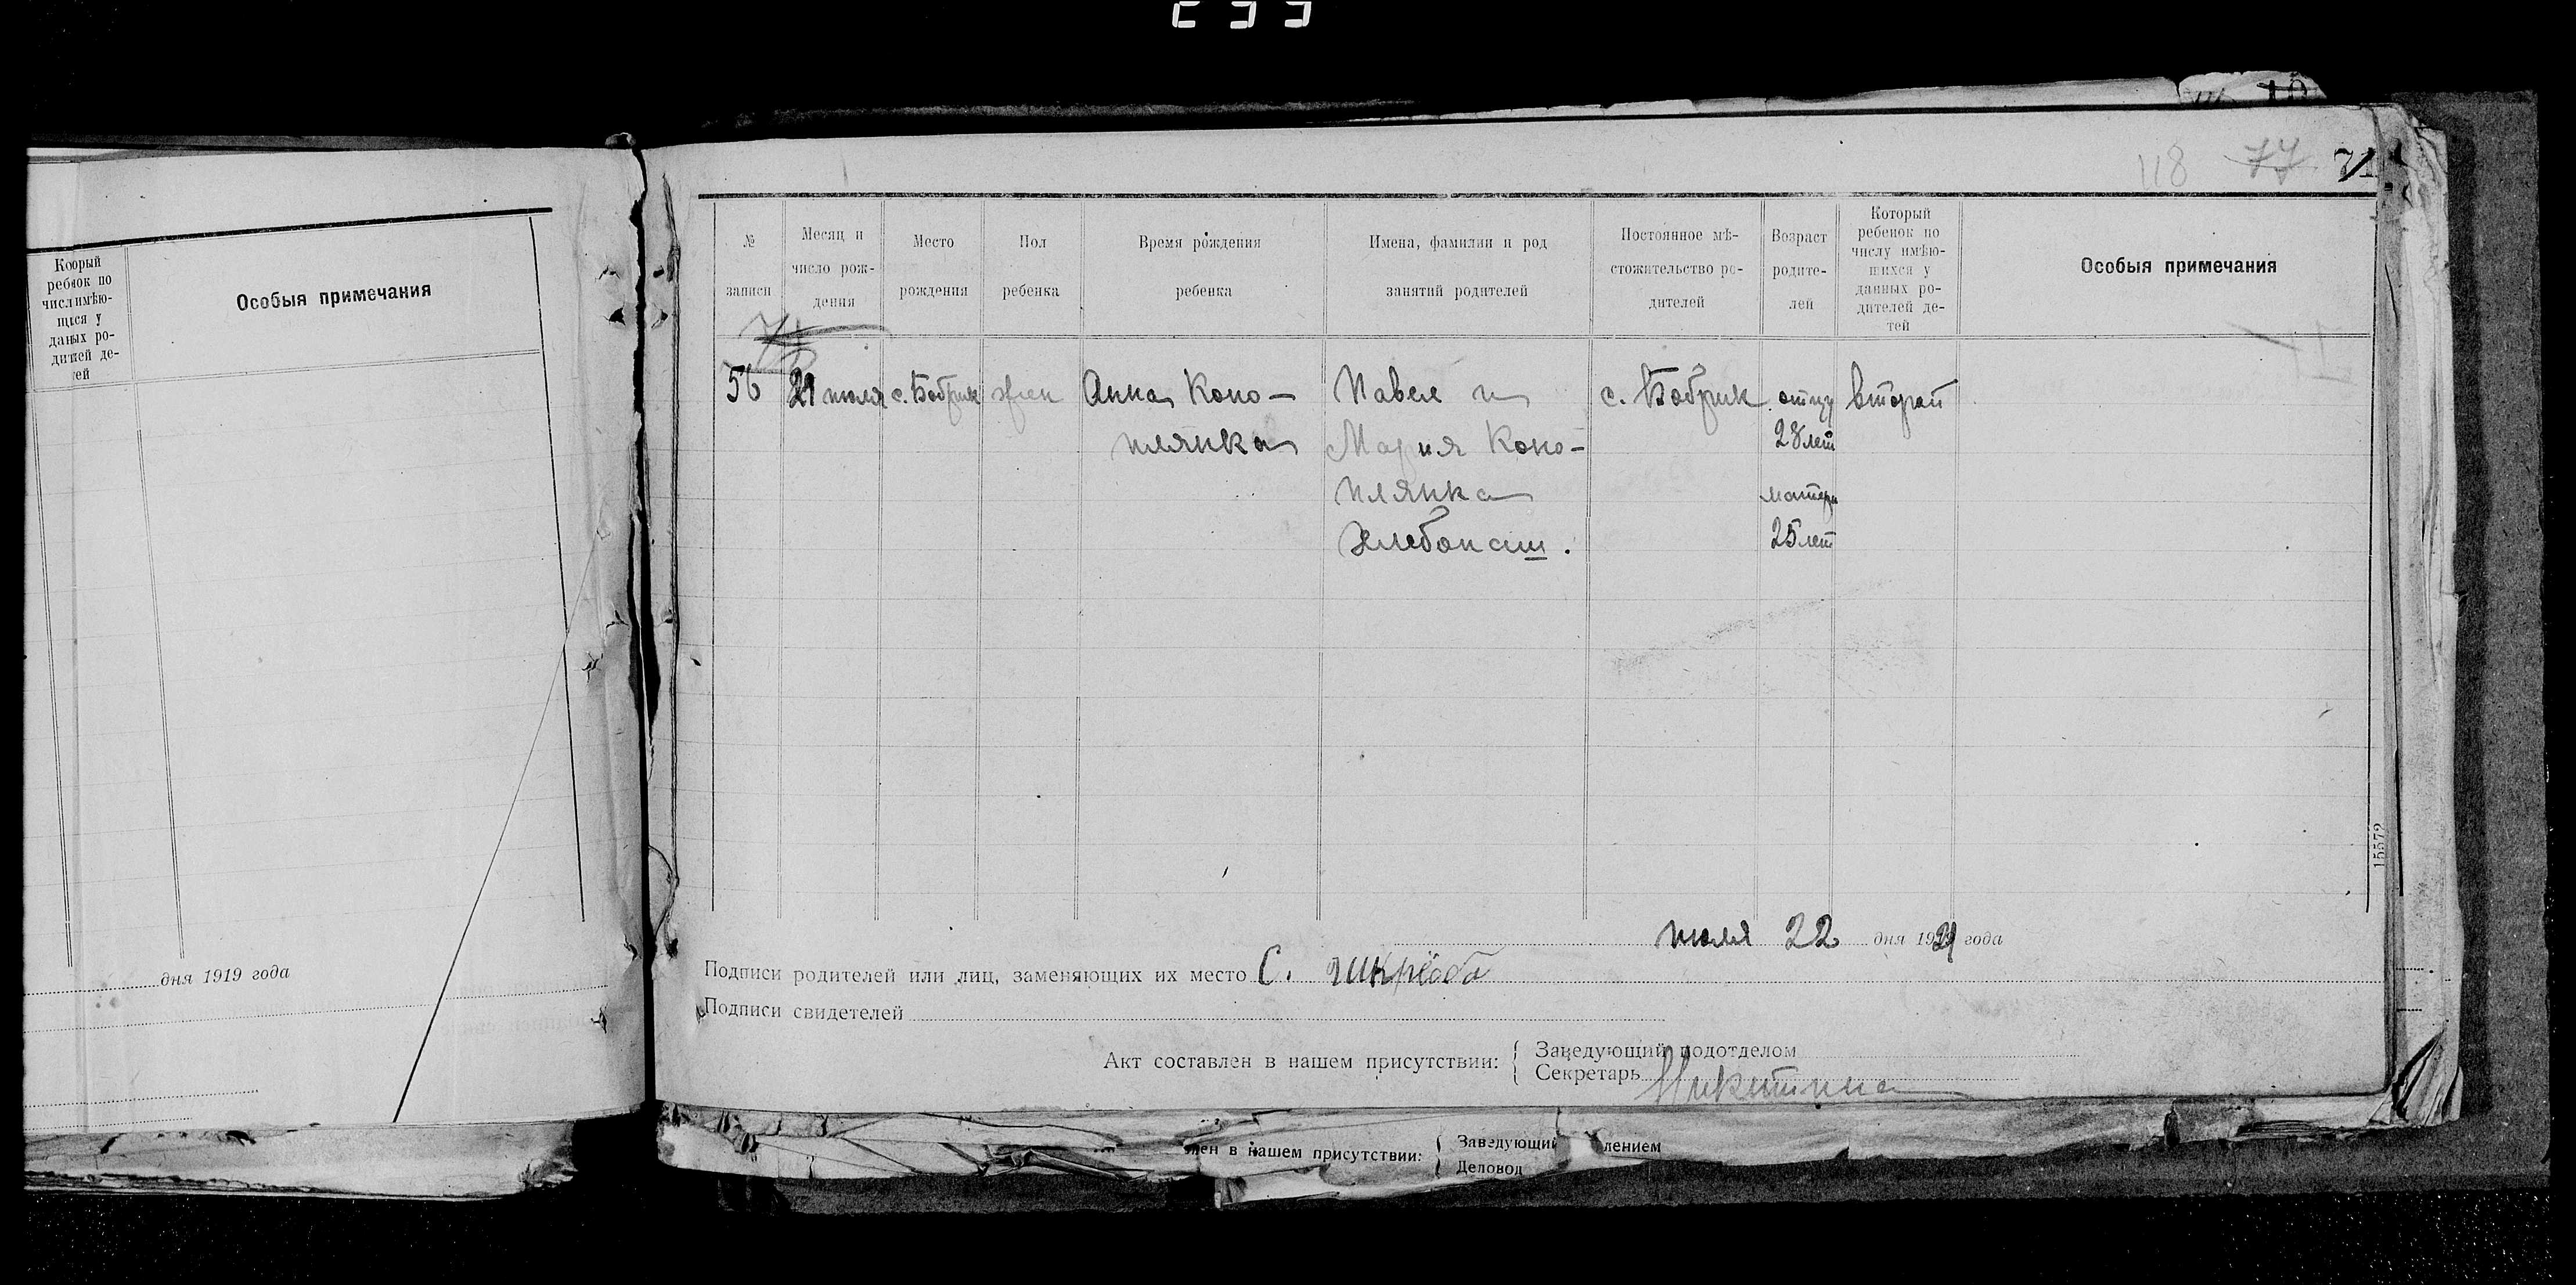 Коорый
ребнок по
числимѣю-
щхся у
даных ро-
дитлей де-
тей
Особыя примечания
дня 1919 года
118 77 71
№
записи
Месяц и
число рож-
дения
Место
рождения
Пол
ребенка
Время рождения
ребенка
Имена, фамилии и род
занятий родителей
Постоянное мѣ-
стожительство ро-
дителей
Возраст
родите-
лей
Который
ребенок по
числу имѣю-
щихся у
данных ро-
дителей де-
тей
Особыя примечания
56 21 июля с. Бобрик жен Анна Коно- Павел и с. Бобрик отцу второй
плянка Мария Коно- 28 лет
плянка матери
Хлебопаш. 25 лет
15572
июля 22 дня 1921 года
Подписи родителей или лиц, заменяющих их место С.
Подписи свидетелей
Акт составлен в нашем присутствии:
Заведующий подотделом
Секретарь Никитина
лен в нашем присутствии:
Заведующий лением
Деловод